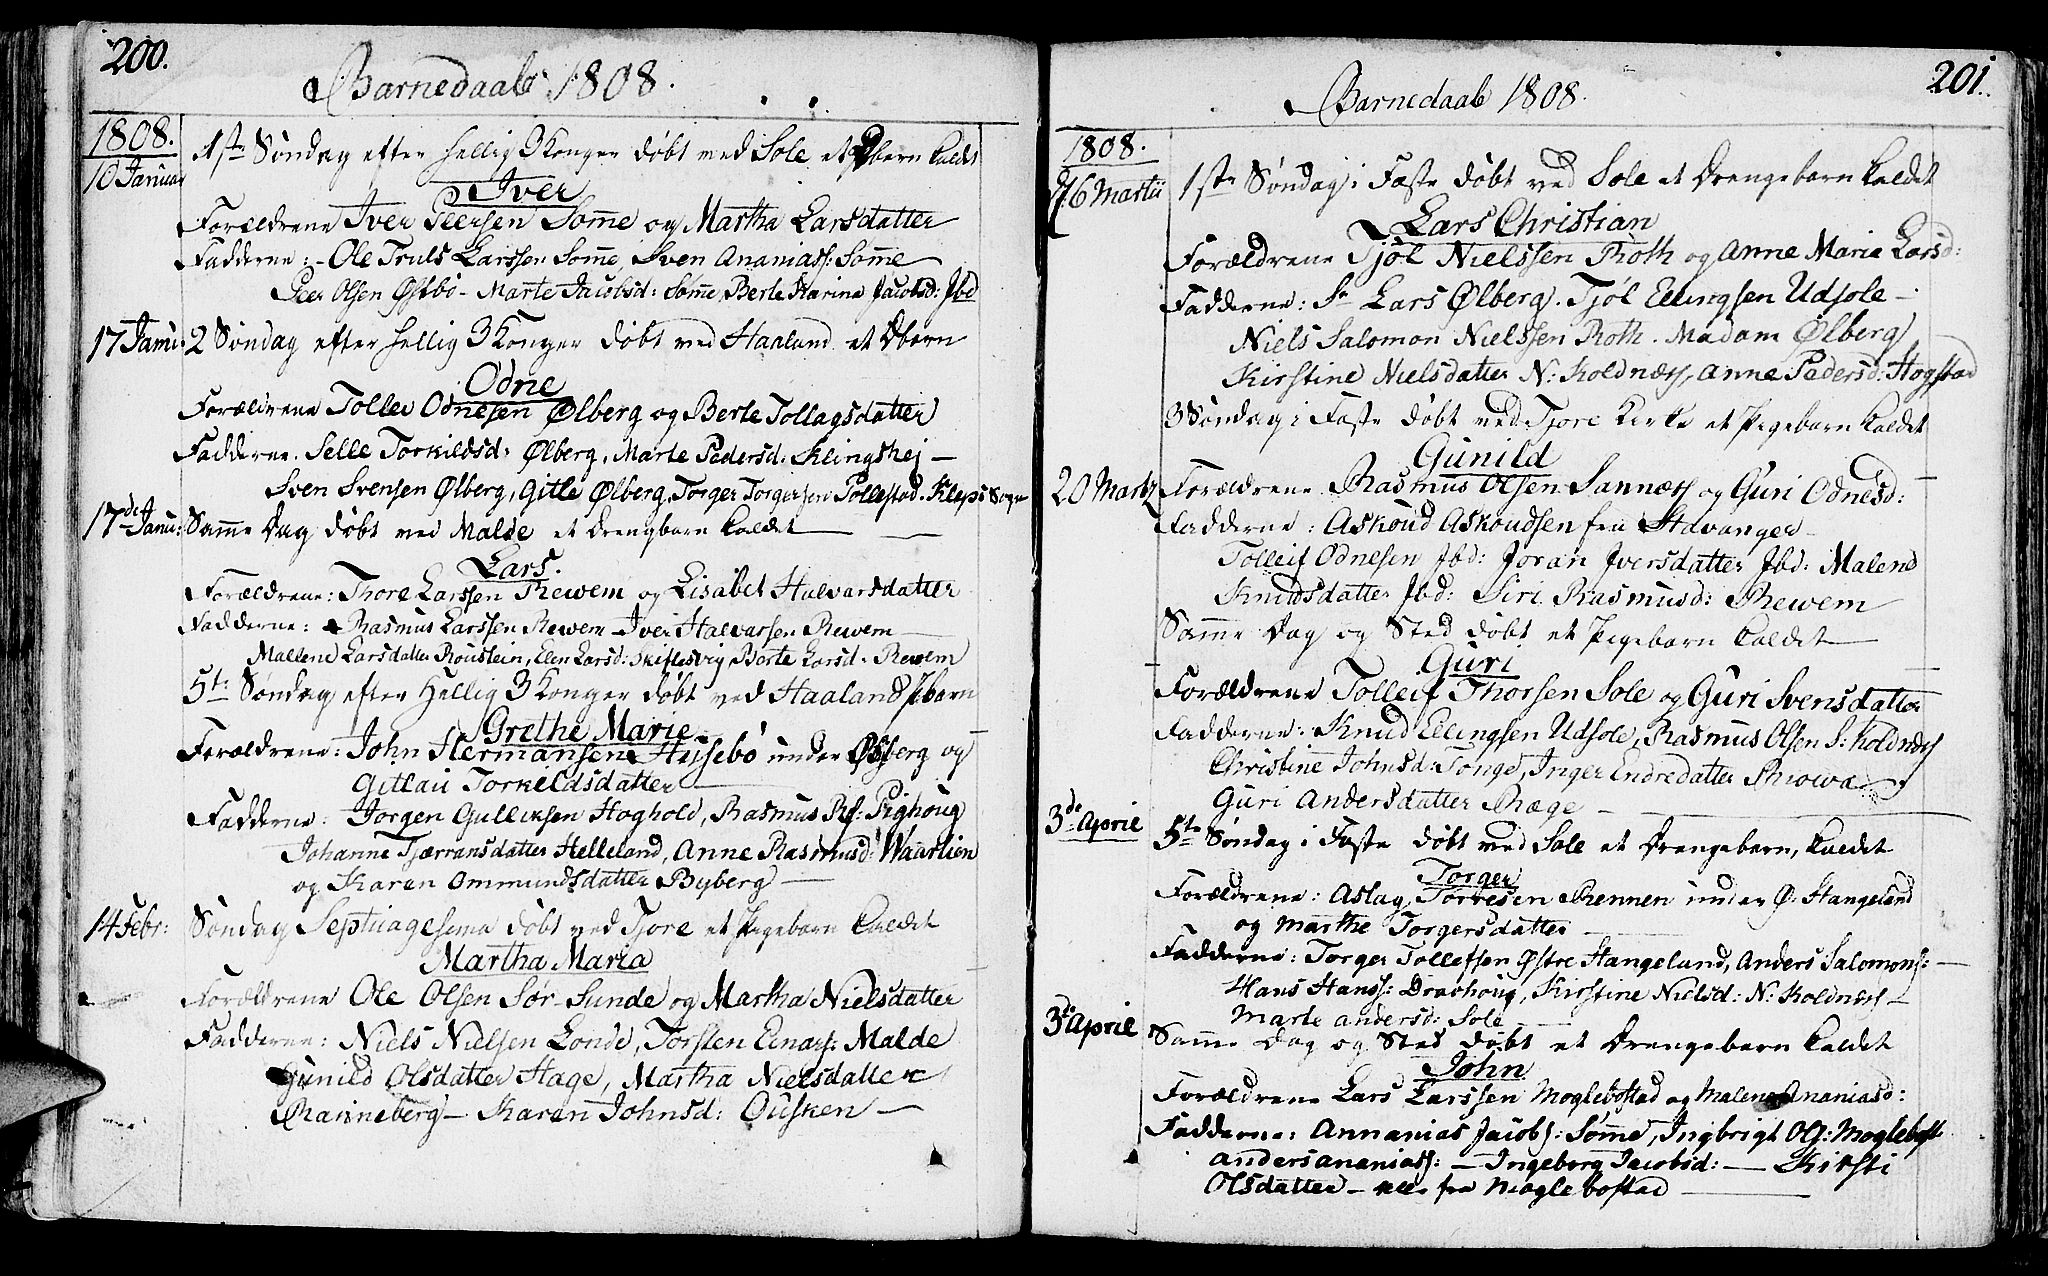 200.
Barnedaab 1808.
1808.
10 Januar 1ste Søndag efter hellig 3 Konger døbt ved Sole et Dbarn kaldt
Iver
Forældrene Iver Peersen Somme og Martha Larsdatter
Fadderne: Ole Truls Larssen Somme, Sven Ananiass: Somme
Peer Olsen Østbö - Marte Jacobsd: Somme, Berte Karina Jacobsd: Ibd
17 Janu: 2 Søndag efter hellig 3 Konger døbt ved Haaland et Dbarn
Odne
Forældrene Tollev Odnesen Ølberg og Berte Tollagsdatter
Fadderne. Selle Torkildsd: Ølberg, Marte Pedersd: Klingshej -
Sven Svensen Ølberg, Gitle Ølberg, Torger Torgersen Pollestad. Kleps Sogn
17de Janu: Samme Dag døbt ved Malde et Drengbarn kaldet
Lars.
Forældrene: Thore Larssen Rewem og Lisabet Halvarsdatter
Fadderne: Rasmus Larssen Rewem - Iver Halvarsen Rewem
Mallene Larsdatter, Elen Larsd: Skiflesvig, Berte Larsd: Rewem
5te Søndag efter Hellig 3 Konger døbt ved Haaland Pbarn
Grethe Marie
Forældrene: John Hermansen Husebö under og
Gitlau Torkeldsdatter
Fadderne: Jorgen Gulliksen Haghold, Rasmus Rs: Pighoug
Johanne Tjærransdatter Helleland, Anne Rasmusd: Waarlien
og Karen Ommundsdatter Byberg
14 Febr: Søndag Septuagesima døbt ved Tjore et Pigebarn kaldet
Martha Maria
Forældrene Ole Olsen Sør-Sunde og Martha Nielsdatter
Fadderne: Niels Nielsen Londe, Torsten Einars: Malde
Gunild Olsdatter Hage, Martha Nielsdatter
Ranneberg - Karen Johnsd: Ousken -
201.
Barnedaab 1808.
1808.
d 6 Martii 1ste Søndag i Faste døbt ved Sole et Drengebarn kaldet
Lars Christian
Forældrene Tjøl Nielssen Roth og Anne Maria Larsd:
Fadderne: Sr Lars Ølberg. Tjøl Ellingsen Udsole -
Niels Salomon Nielssen Roth. Madam Ølberg
Kirstine Nielsdatter N: Koldnæs, Anne Pedersd: Hogstad
3 Søndag i Faste døbt ved Tjore Kirke et Pigebarn kaldet
Gunild
20 Martz Forældrene Rasmus Olsen Sannæs og Guri Odnesd:
Fadderne: Askoud Askoudsen fra Stavanger
Tolleif Odnesen Ibd: Joran Iversdatter Ibd: Malend
Knudsdatter Ibd: Siri Rasmusd: Rewem
Samme Dag og Sted døbt et Pigebarn kaldet
Guri
Forældrene Tolleif Thorsen Sole og Guri Svensdatter
Fadderne: Knud Ellingsen Udsole, Rasmus Olsen S: Koldnæs
Christine Johnsd: Tonge, Inger Endredatter
Guri Andersdatter Ræge -
3de April 5te Søndag i Faste døbt ved Sole et Drengebarn, kaldet
Torger
Forældrene: Aslag Torresen Rennen under Ø: Stangeland
og Marthe Torgersdatter
Fadderne: Torger Tollefsen Østre Stangeland, Anders Salomons: -
Hans Hanss: Dravhoug, Kirstine Nielsd: N: Koldnæs -
Marte Andersd: Sole
3de April Samme Dag og Sted døbt et Drengebarn kaldet
John
Forældrene Lars Larssen Moglebostad og Malene Ananiasd:
Fadderne: Annanias Jacobs: Somme, Ingbrigt Ols: Moglebost
Anders Ananiass: - Ingeborg Jacobsd: - Kirsti
Olsdatter - alle fra Moglebostad